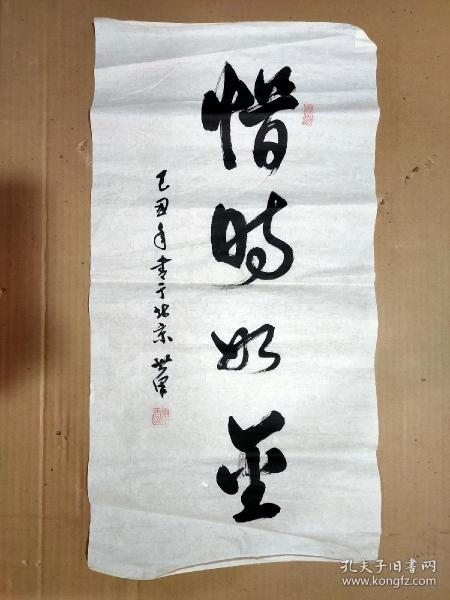 惜时如金
己丑年书于北京
孔夫子旧书网
www.kongfz.com